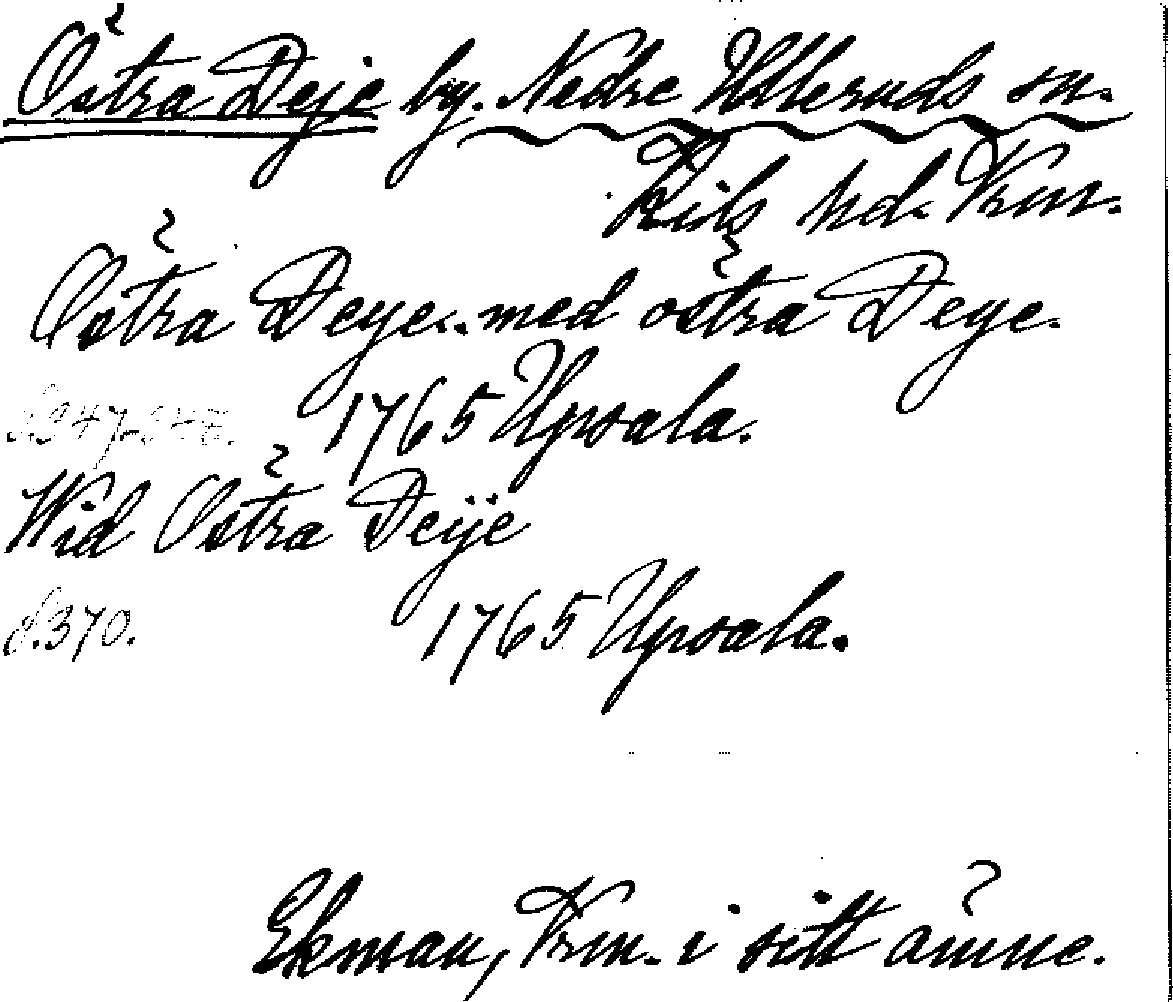 Östra Deje by. Nedre Ulleruds sn.
Kils hd. Vrm.
Östra Deye.. med östra Deye.
S.347-348. 1765 Upsala.
Wid Östra Deije
S.370. 1765 Upsala.
Ekman, Vrm. i sitt ämne.